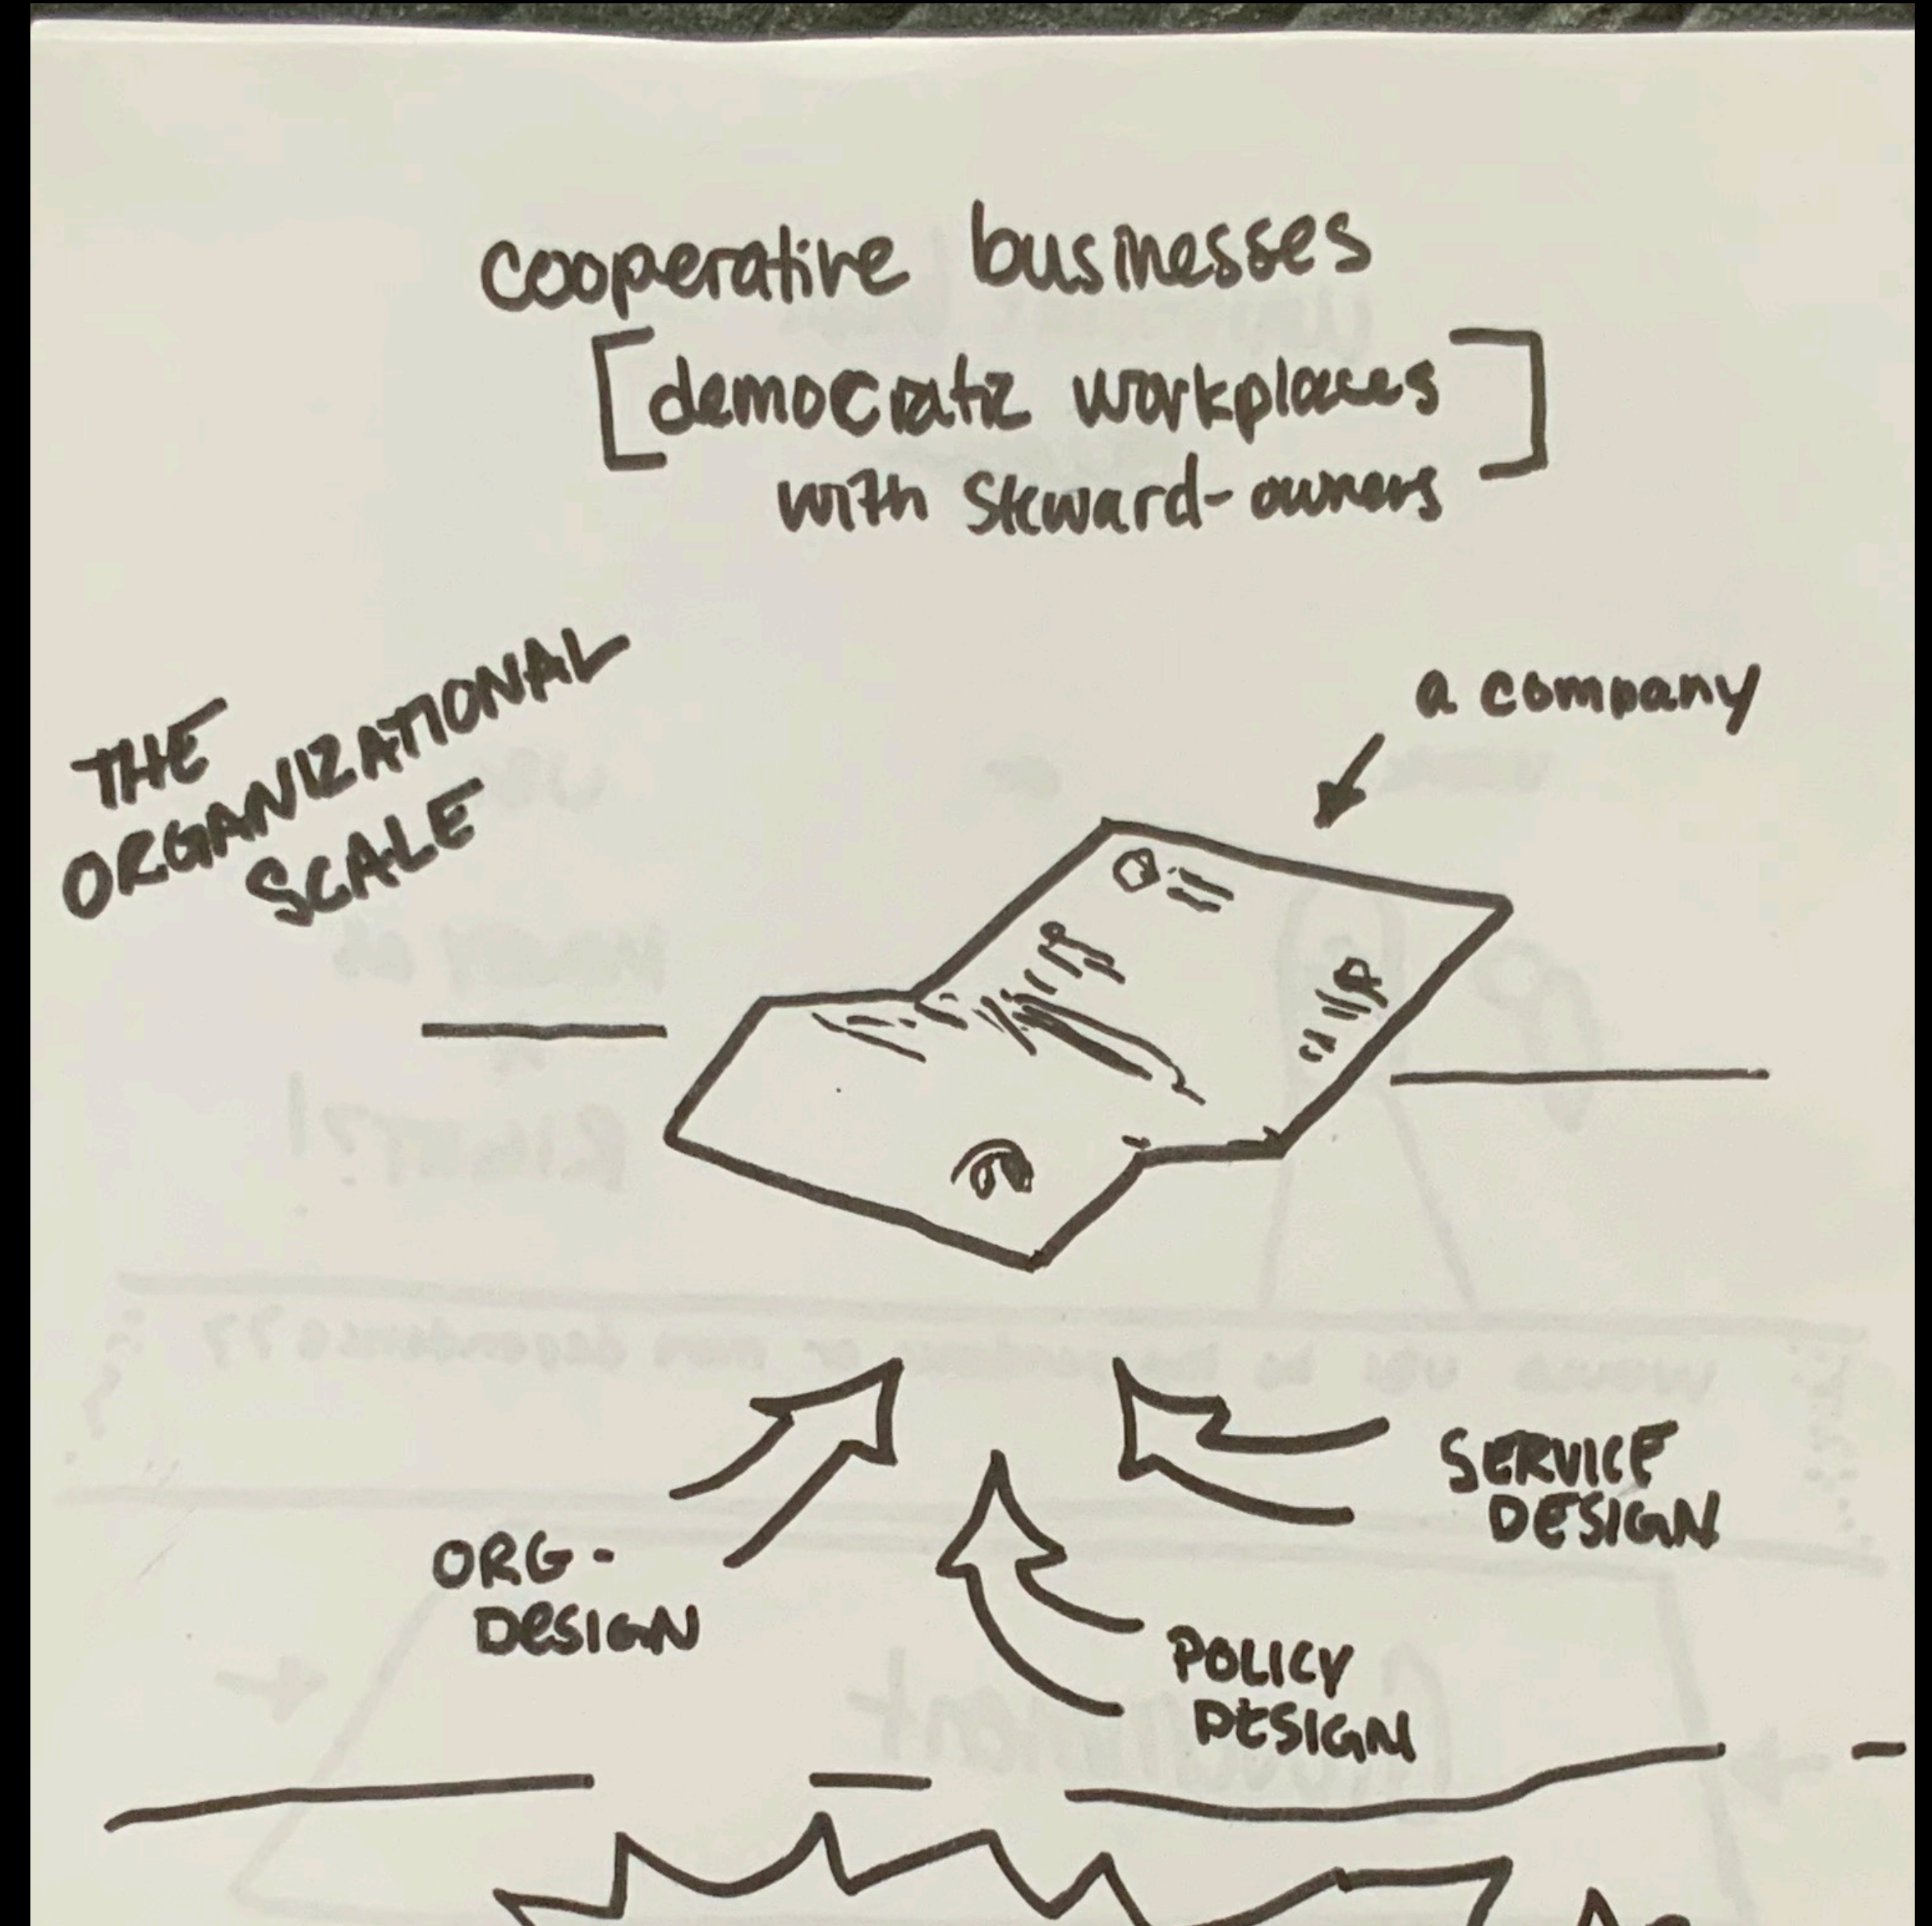 cooperative businesses
[democratic workplaces]
with steward-owners
THE
ORGANIZATIONAL
SCALE
a company
SERVICE
DESIGN
ORG-
DESIGN
POLICY
DESIGN